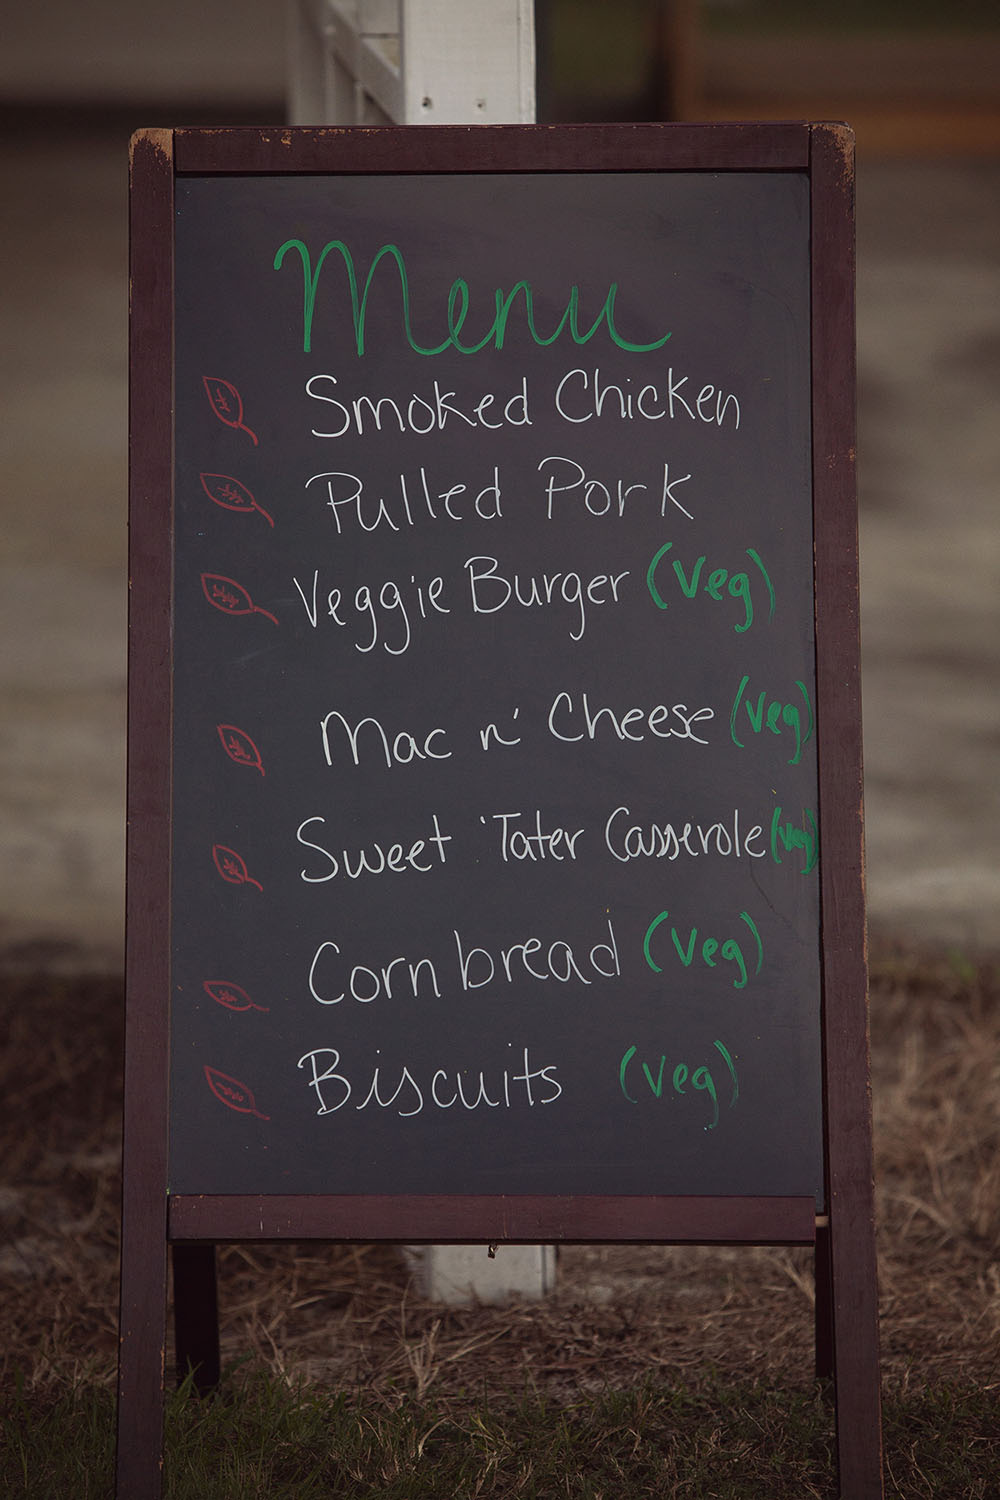 Menu
Smoked Chicken
Pulled Pork
Veggie Burger (Veg)
Mac n' Cheese (Veg)
Sweet 'Tater Casserole (Veg)
Cornbread (Veg)
Biscuits (Veg)